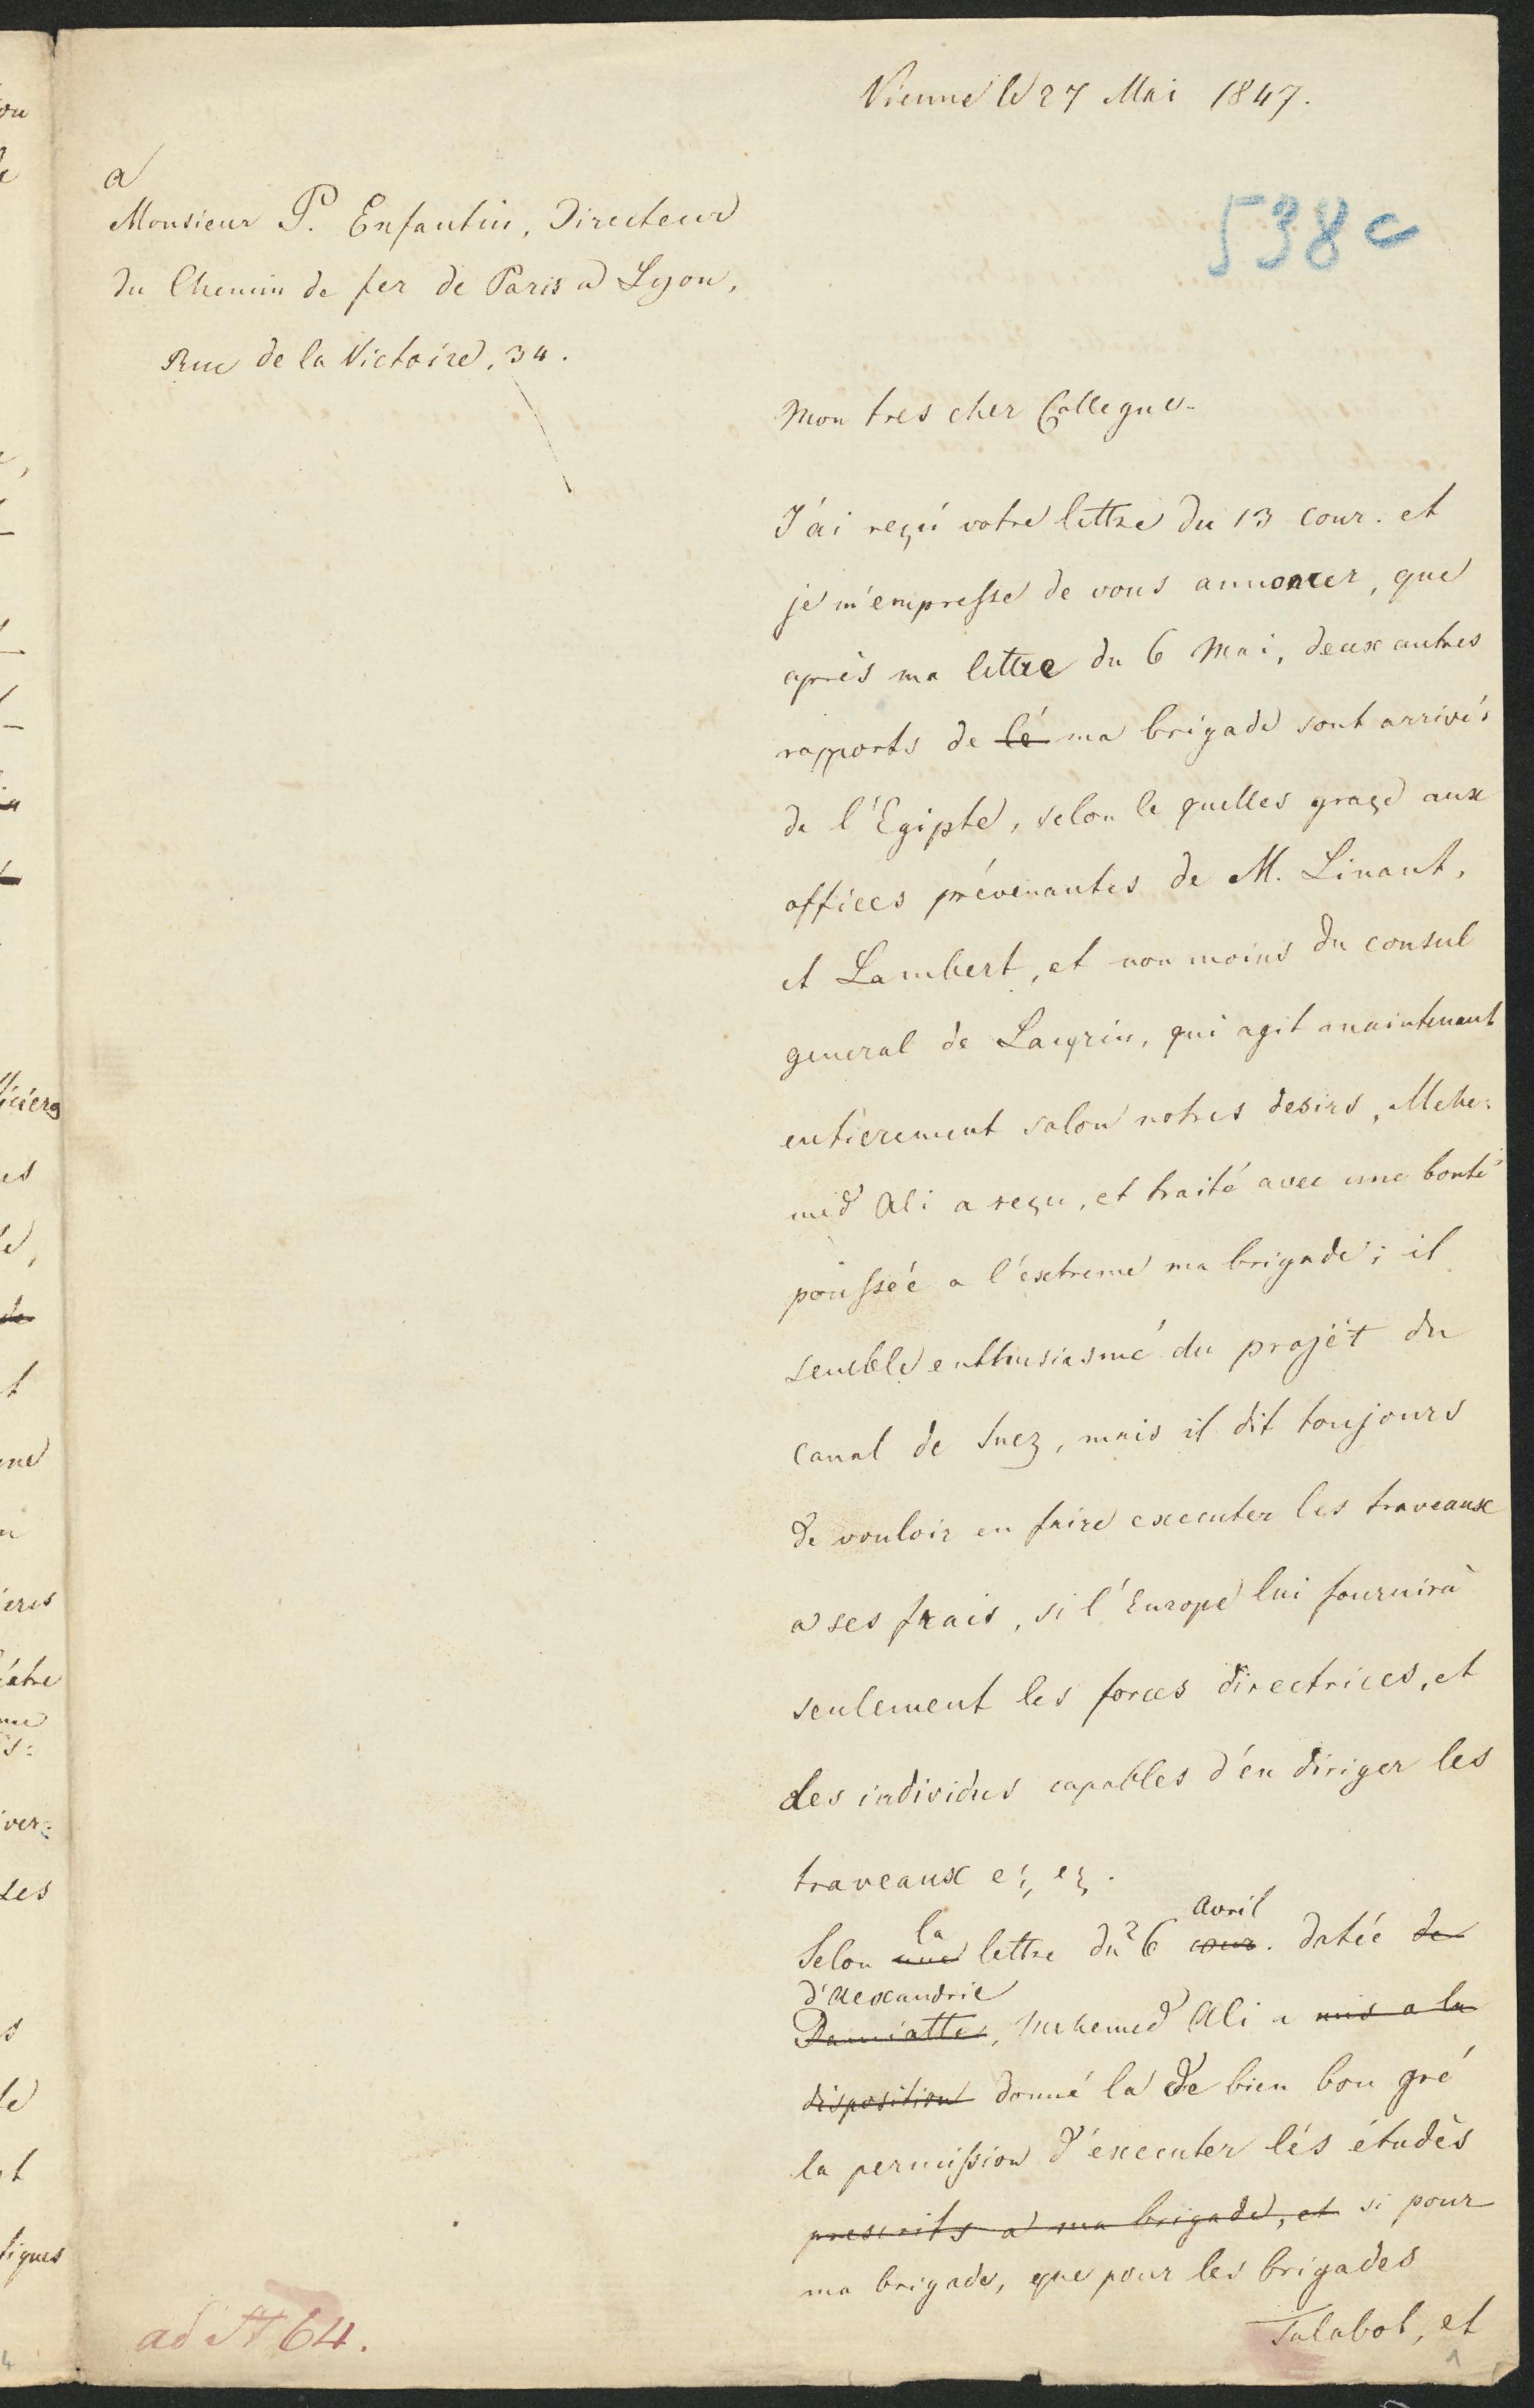 Vienne le 27 Mai 1847.
538c
a
Monsieur P. Enfantin, Directeur
du Chemin de fer de Paris a Lyon,
Rue de la Victoire, 34.
Mon tres cher Collegue
J'ai reçú votre lettre du 13 cour. et
je m'empresse de vous annoncer, que
après ma lettre du 6 Mai, deux autres
rapports de lé ma brigade sont arrivés
de l'Egipte, selon le quelles graçe aux
offices prévenantes de M. Linant,
et Lambert, et non moins du consul
general de Laurin, qui agit maintenant
entierement selon notres desirs, Mehe-
med Ali a reçu, et traité avec une bonté
poussée a l'éxtreme ma brigade; il
semble enthusiasmé du projèt du
canal de Suez, mais il dit toujours
de vouloir en faire executer les traveaux
a ses frais, si l'Europe lui fournirà
seulement les forces directrices, et
des individus capables d'én diriger les
traveaux
Selon une la lettre du 26 cour. Avril datée de
d'Alexandrie
Damiatte, Mehemed Ali a mis a la
disposition donné la de bien bon gré
la permission d'éxecuter lés étudès
prescrits a ma brigade, et si pour
ma brigade, que pour les brigades
Talabot, et
ad N 64.
ou
iciers
es
de
t
me
eres
ver:
Les
s
t
tiques
4
1